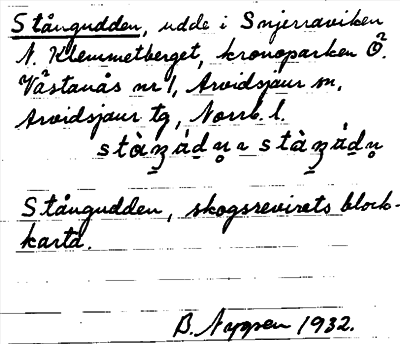 Stångudden, udde i Snjerraviken
N. Klemmetberget, kronoparken Ö.
Västanås nr 1, Arvidsjaur sn,
Arvidsjaur tg, Norrb. l.
Stångudden, skogsrevirets block-
karta.
B. 1932.